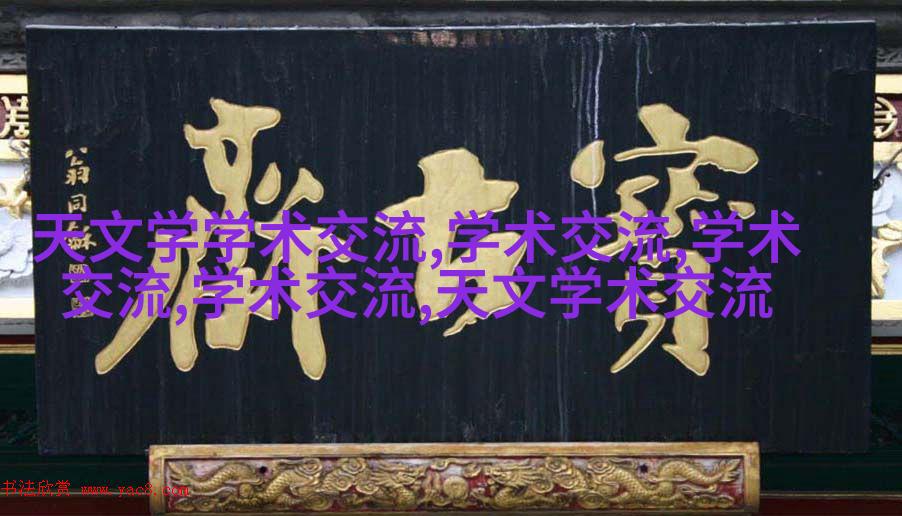 寶古齋
翁同龢
天文学学术交流,学术交流,学术
交流,学术交流,天文学术交流
书法欣赏 www.yac8.com